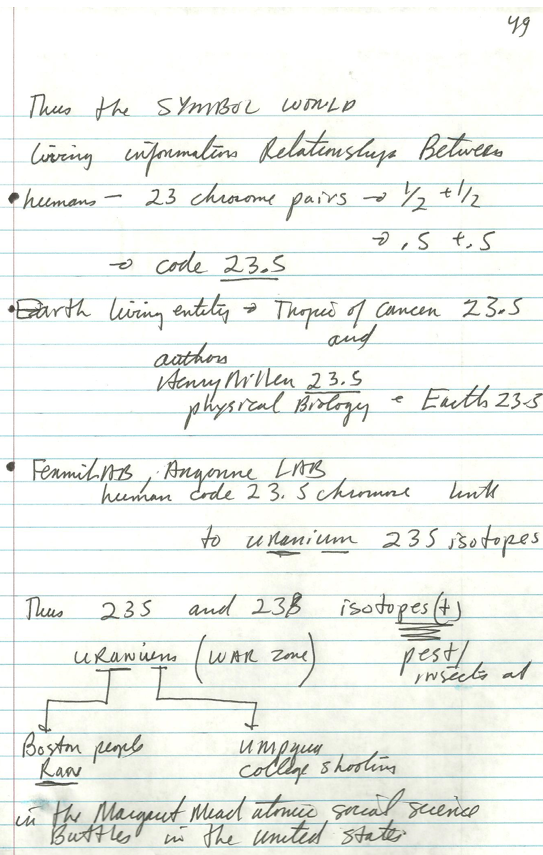 49
Thus the SYMBOL WORLD
living information Relationships Between
• humans – 23 chrome pairs → 1/2 + 1/2
→ .5 + .5
→ code 23.5
• Earth living entity → Tropic of Cancer 23.5
and
author
Henry Miller 23.5
physical Biology • Earth 23.5
• FermiLAB, Argonne LAB
human code 23.5 chromose link
to uranium 235 isotopes
Thus 235 and 238 isotopes(t)
uraniums (WAR zone) pest/
insects at
Boston people umpqua
Ran college shooting
in the Margaret Mead atomic social science
Battles in the united states